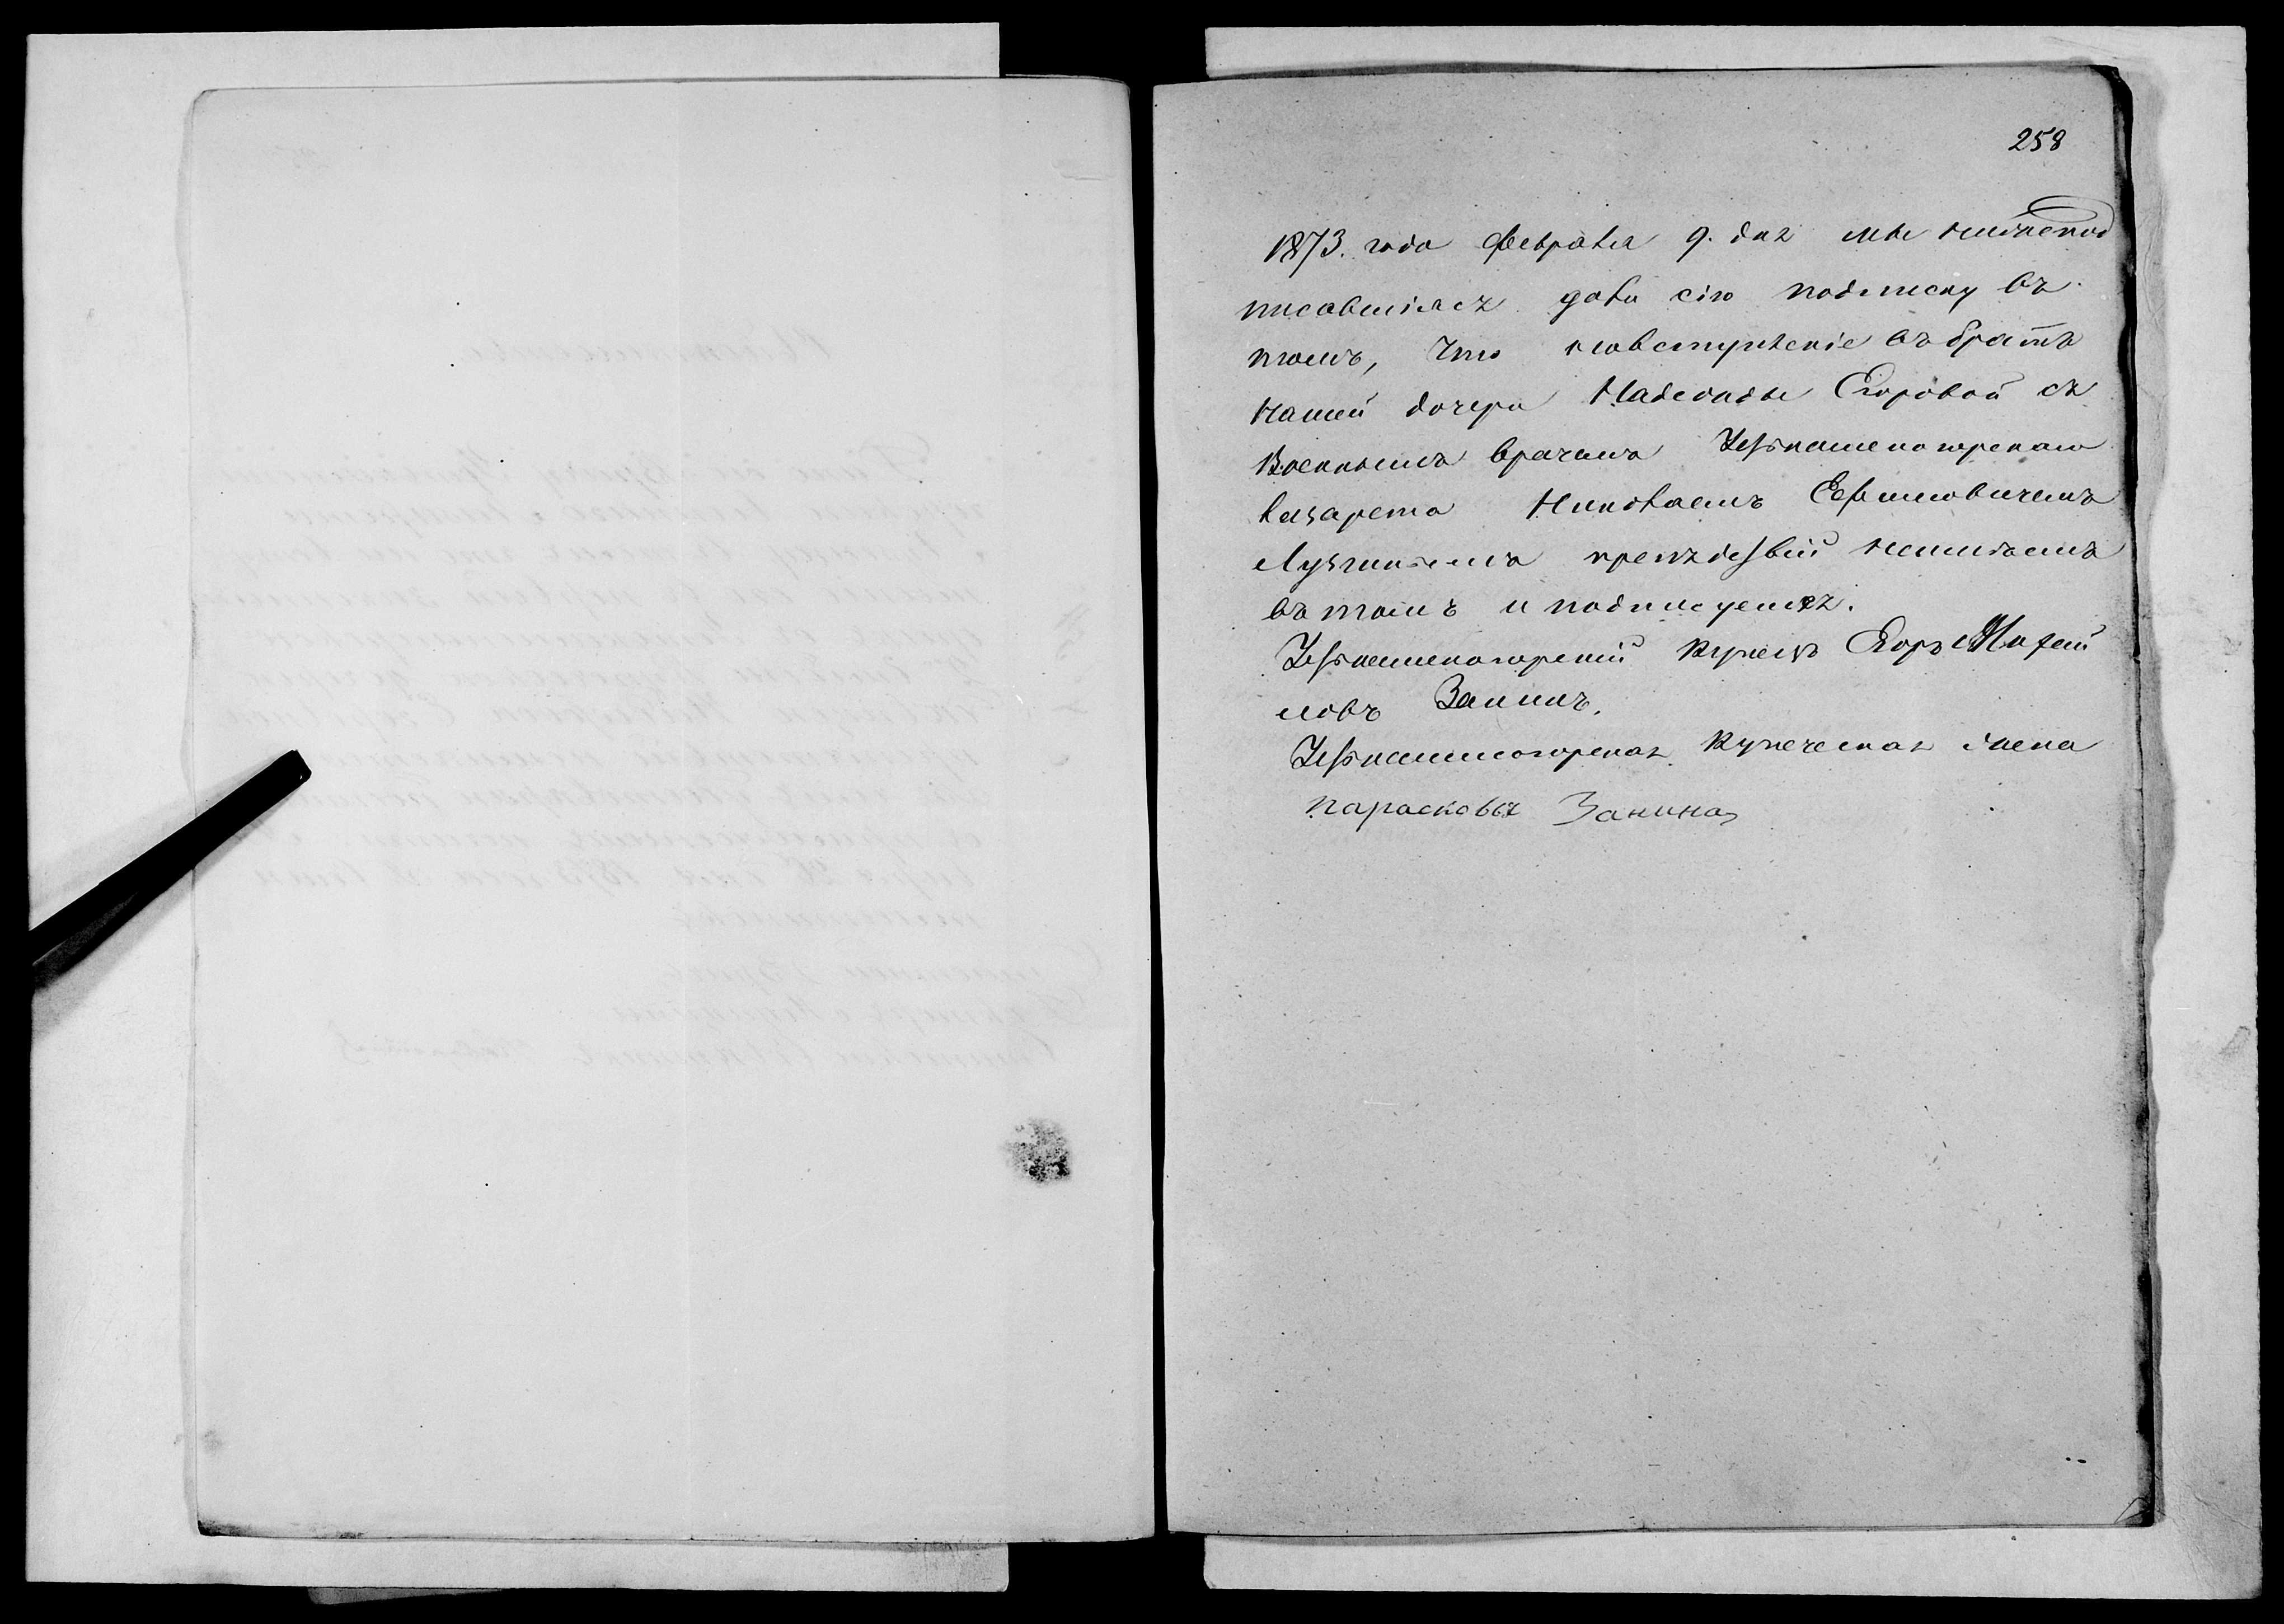 258
1873. года февраля 9. дня мы нижепод
писавшіясь дали сію подписку въ
томъ, что на вступленіе въ бракъ
нашей дочери Надежды Егоровой съ
Военнымъ врачемъ Устькаменогорскаго
лазарета Николаемъ Ефимовичемъ
препядствій неимѣемъ
въ томъ и подписуемся.
Устькаменогорскій купецъ Егоръ
ловъ Занинъ.
Устькаменогорская купеческая жена
парасковья Занина